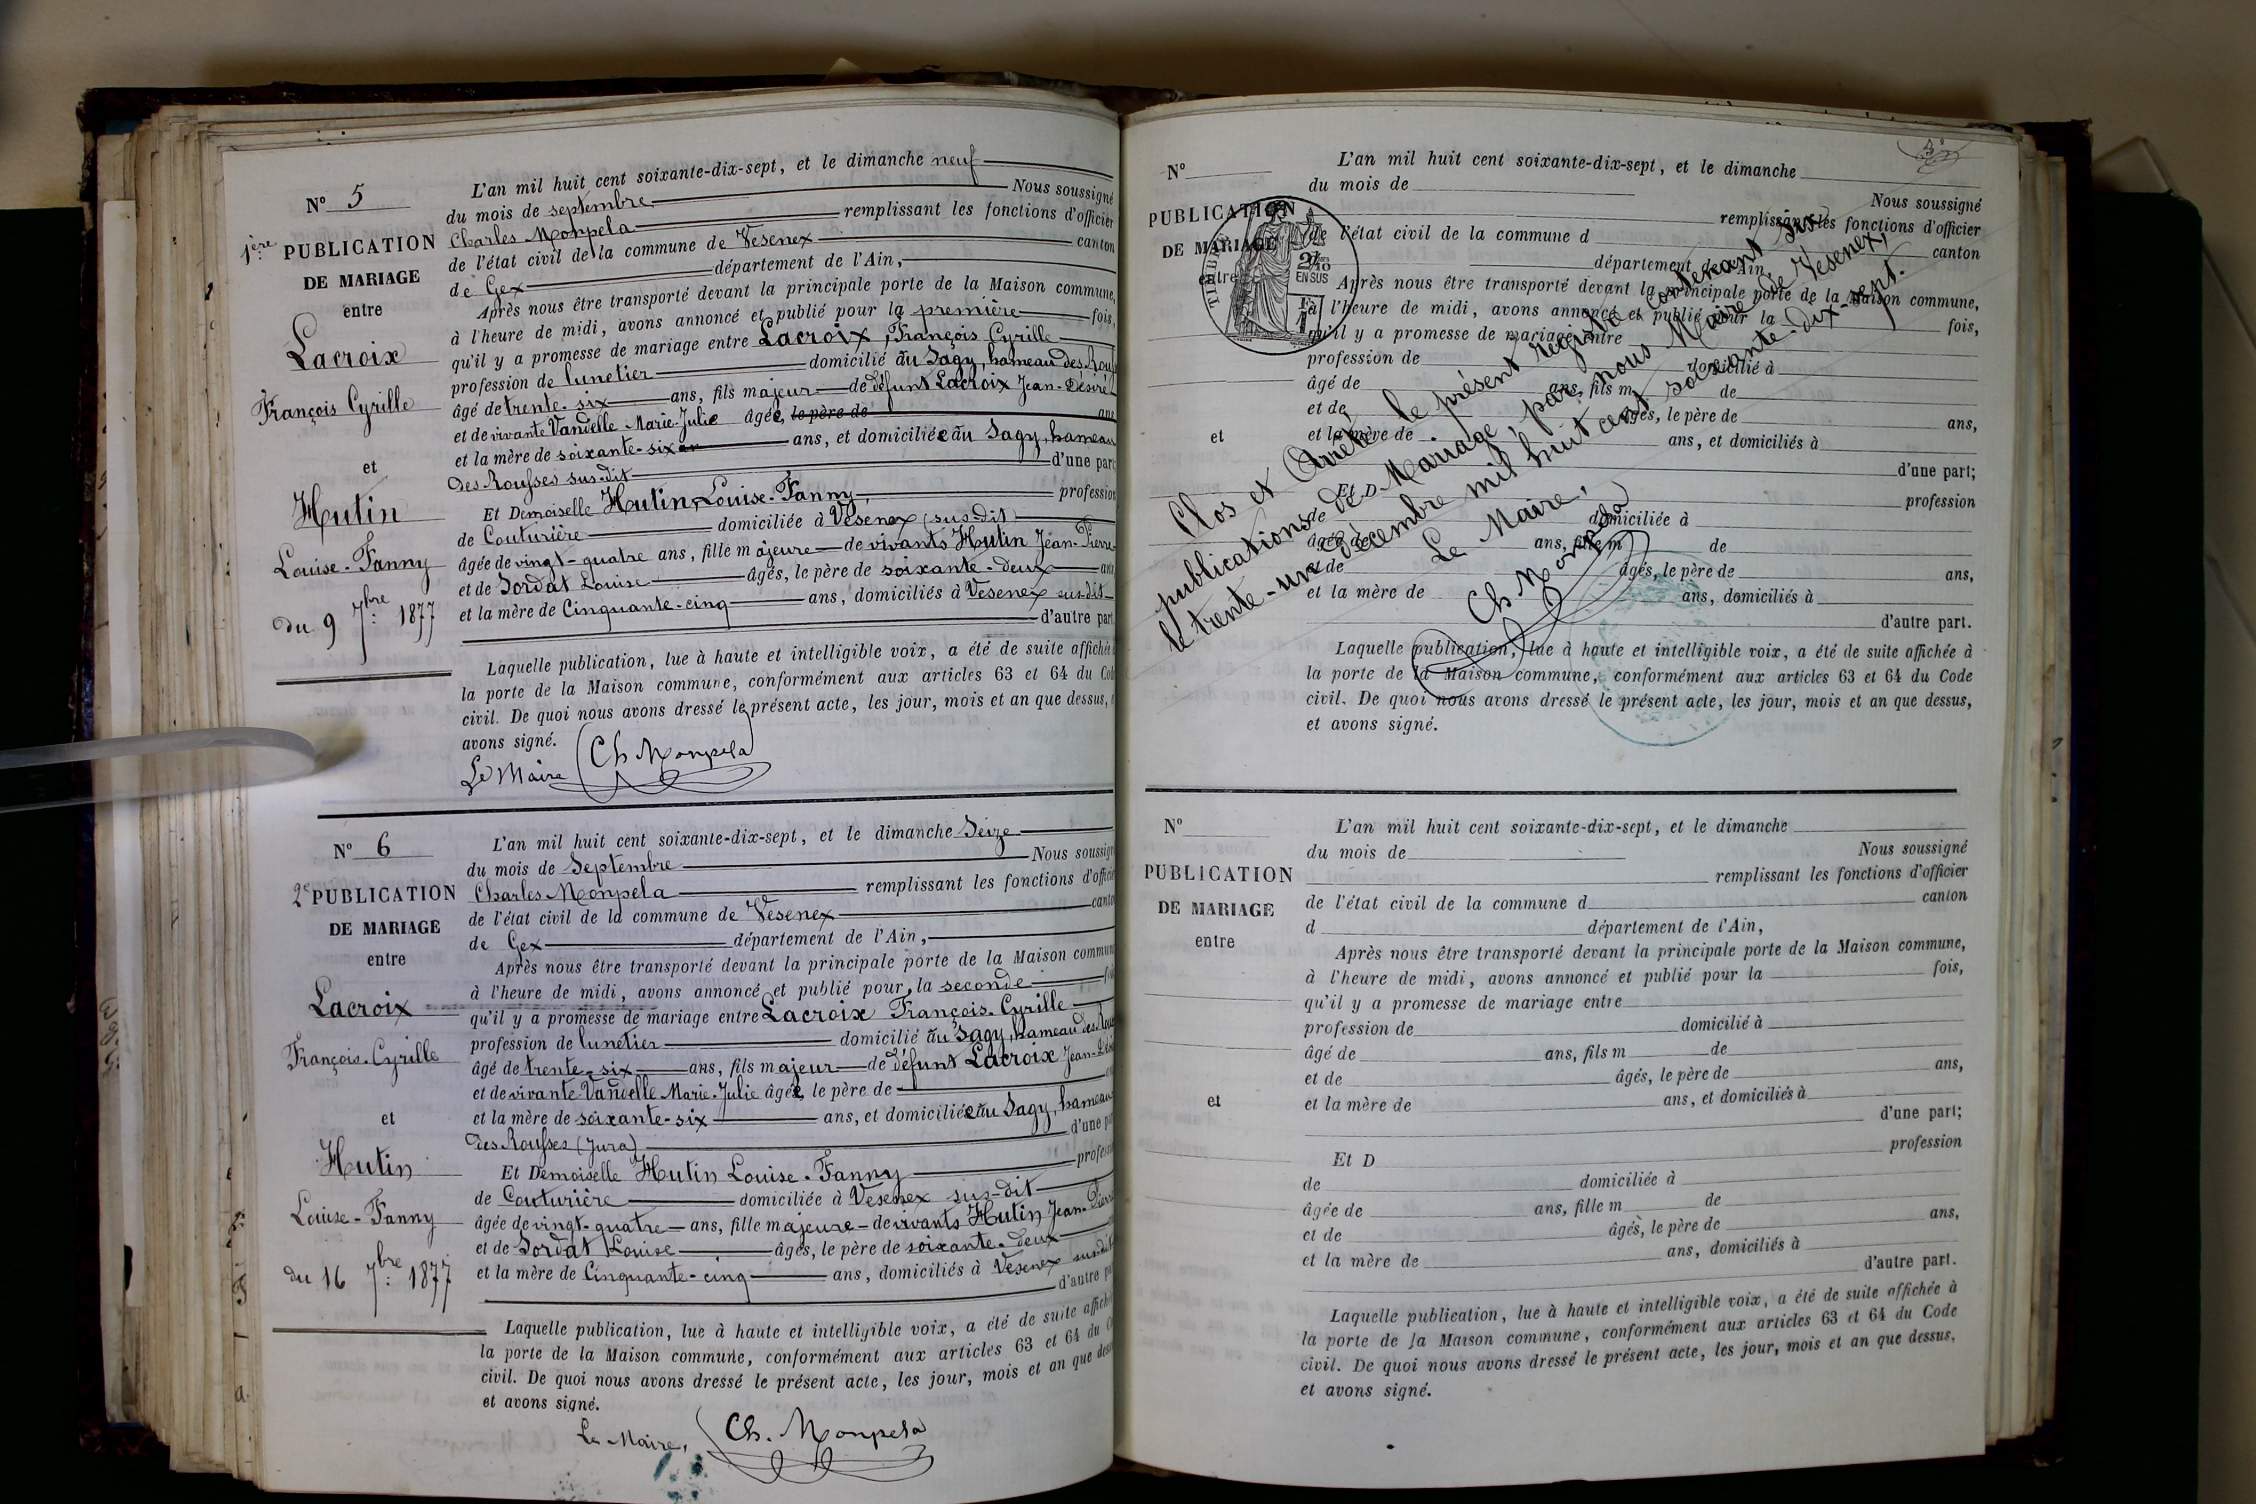 N° 5
1ère PUBLICATION
DE MARIAGE
entre
Lacroix
François Cyrille
et
Hutin
Louise-Fanny
du 9 7bre 1877
L'an mil huit cent soixante-dix-sept, et le dimanche neuf
du mois de septembre Nous soussigné
Charles Monpela remplissant les fonctions d'officier
de l'état civil de la commune de Vesenex canton
de Gex département de l'Ain,
Après nous être transporté devant la principale porte de la Maison commune,
à l'heure de midi, avons annoncé et publié pour la première fois,
qu'il y a promesse de mariage entre Lacroix, François Cyrille
profession de lunetier domicilié au Sagy, hameau des Rouss
âgé de trente-six ans, fils majeur de défunt Lacroix Jean-Désiré
et de vivante Vandelle Marie-Julie âgée, le père de ans
et la mère de soixante-six ans, et domiciliée au Sagy, hameau
des Rousses sus-dit d'une part
Et Demoiselle Hutin, Louise-Fanny, profession
de Couturière domiciliée à Vesenex (sus-dit)
âgée de vingt-quatre ans, fille majeure de vivants Hutin Jean-Pierre
et de Sordat Louise âgés, le père de soixante-deux ans
et la mère de Cinquante-cinq ans, domiciliés à Vesenex sus-dit
d'autre part
Laquelle publication, lue à haute et intelligible voix, a été de suite affichée
la porte de la Maison commune, conformément aux articles 63 et 64 du Code
civil. De quoi nous avons dressé le présent acte, les jour, mois et an que dessus, e
avons signé.
Le Maire Ch Monpela
N° 6
2e PUBLICATION
DE MARIAGE
entre
Lacroix
François-Cyrille
et
Hutin
Louise-Fanny
du 16 7bre 1877
L'an mil huit cent soixante-dix-sept, et le dimanche Seize
du mois de Septembre Nous soussign
Charles Monpela remplissant les fonctions d'officie
de l'état civil de la commune de Vesenex canto
de Gex département de l'Ain,
Après nous être transporté devant la principale porte de la Maison commun
à l'heure de midi, avons annoncé et publié pour la seconde foi
qu'il y a promesse de mariage entre Lacroix François-Cyrille
profession de lunetier domicilié au Sagy, hameau des Rous
âgé de trente-six ans, fils majeur de défunt Lacroix Jean-Dési
et de vivante Vandelle Marie-Julie âgée, le père de
et la mère de soixante-six ans, et domiciliée au Sagy, hameau
des Rousses (Jura) d'une pa
Et Demoiselle Hutin Louise-Fanny profess
de Couturière domiciliée à Vesenex sus-dit
âgée de vingt-quatre ans, fille majeure de vivants Hutin Jean-Pierr
et de Sordat Louise âgés, le père de soixante-deux
et la mère de Cinquante-cinq ans, domiciliés à Vesenex sus-dit
d'autre pa
Laquelle publication, lue à haute et intelligible voix, a été de suite affich
la porte de la Maison commune, conformément aux articles 63 et 64 du C
civil. De quoi nous avons dressé le présent acte, les jour, mois et an que dess
et avons signé.
Le Maire, Ch. Monpela
N°
PUBLICATION
DE MARIAGE
entre
et
TIMBRE
2/10
EN SUS
L'an mil huit cent soixante-dix-sept, et le dimanche
du mois de Nous soussigné
remplissant les fonctions d'officier
de l'état civil de la commune d canton
département de l'Ain,
Après nous être transporté devant la principale porte de la Maison commune,
à l'heure de midi, avons annoncé et publié pour la fois,
qu'il y a promesse de mariage entre
profession de domicilié à
âgé de ans, fils m de
et de âgés, le père de ans,
et la mère de ans, et domiciliés à
d'une part;
Et D profession
de domiciliée à
âgée de ans, fille m de
et de âgés, le père de ans,
et la mère de ans, domiciliés à
d'autre part.
Laquelle publication, lue à haute et intelligible voix, a été de suite affichée à
la porte de la Maison commune, conformément aux articles 63 et 64 du Code
civil. De quoi nous avons dressé le présent acte, les jour, mois et an que dessus,
et avons signé.
Clos et Arrêté le présent registre contenant six
publications de Mariage, par nous Maire de Vesenex,
le trente-un décembre mil huit cent soixante-dix-sept.
Le Maire,
Ch Monpela
N°
PUBLICATION
DE MARIAGE
entre
et
L'an mil huit cent soixante-dix-sept, et le dimanche
du mois de Nous soussigné
remplissant les fonctions d'officier
de l'état civil de la commune d canton
d département de l'Ain,
Après nous être transporté devant la principale porte de la Maison commune,
à l'heure de midi, avons annoncé et publié pour la fois,
qu'il y a promesse de mariage entre
profession de domicilié à
âgé de ans, fils m de
et de âgés, le père de ans,
et la mère de ans, et domiciliés à
d'une part;
Et D profession
de domiciliée à
âgée de ans, fille m de
et de âgés, le père de ans,
et la mère de ans, domiciliés à
d'autre part.
Laquelle publication, lue à haute et intelligible voix, a été de suite affichée à
la porte de la Maison commune, conformément aux articles 63 et 64 du Code
civil. De quoi nous avons dressé le présent acte, les jour, mois et an que dessus,
et avons signé.